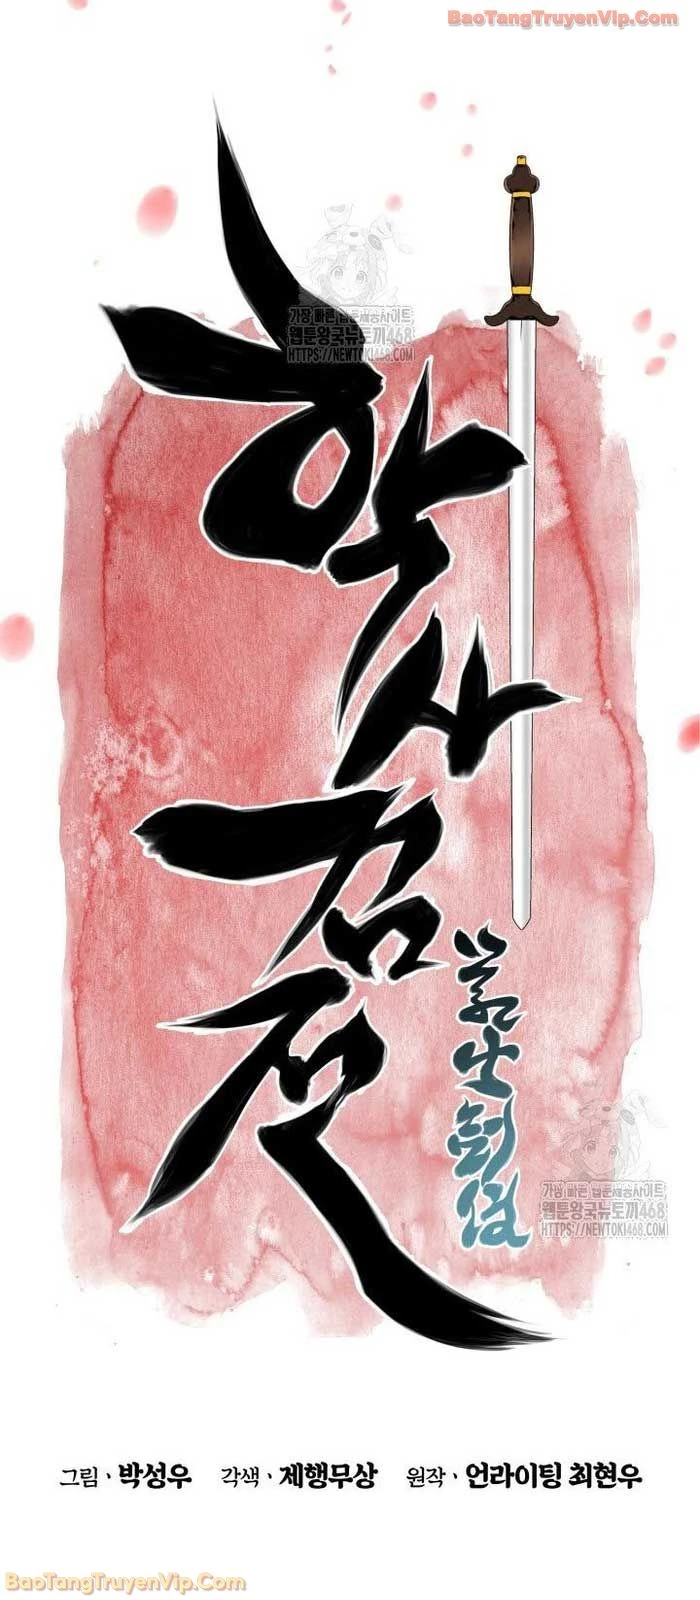 BaoTangTruyenVip.Com
가장 빠른 웹툰제공사이트
웹툰왕국뉴토끼468
HTTPS://NEWTOKI468.COM
학사검전
學士劍傳
가장 빠른 웹툰제공사이트
웹툰왕국뉴토끼468
HTTPS://NEWTOKI468.COM
그림·박성우 각색·제행무상 원작·언라이팅 최현우
BaoTangTruyenVip.Com